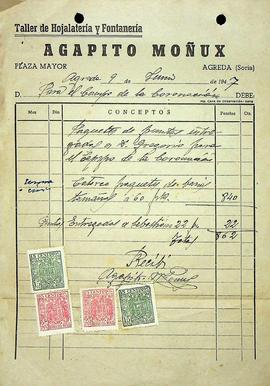 Taller de Hojalatería y Fontanería
AGAPITO MOÑUX
PLAZA MAYOR AGREDA (Soria)
Agreda 9 de Junio de 1947
D. Para el Campo de la Coronación DEBE:
Mes CONCEPTOS Pesetas Cts.
Paquetes de puntas entre-
gadas a D. Gregorio para
el Campo de la Coronación
Catorce paquetes de varios
tamaños a 60 pts. 840
Puntas Entregadas a Sebastián 22 p. 22
Total 862
Recibí
Agapito Moñux